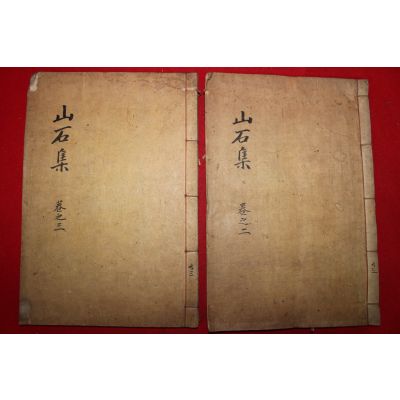 山石集
卷之三
山石集
卷之二